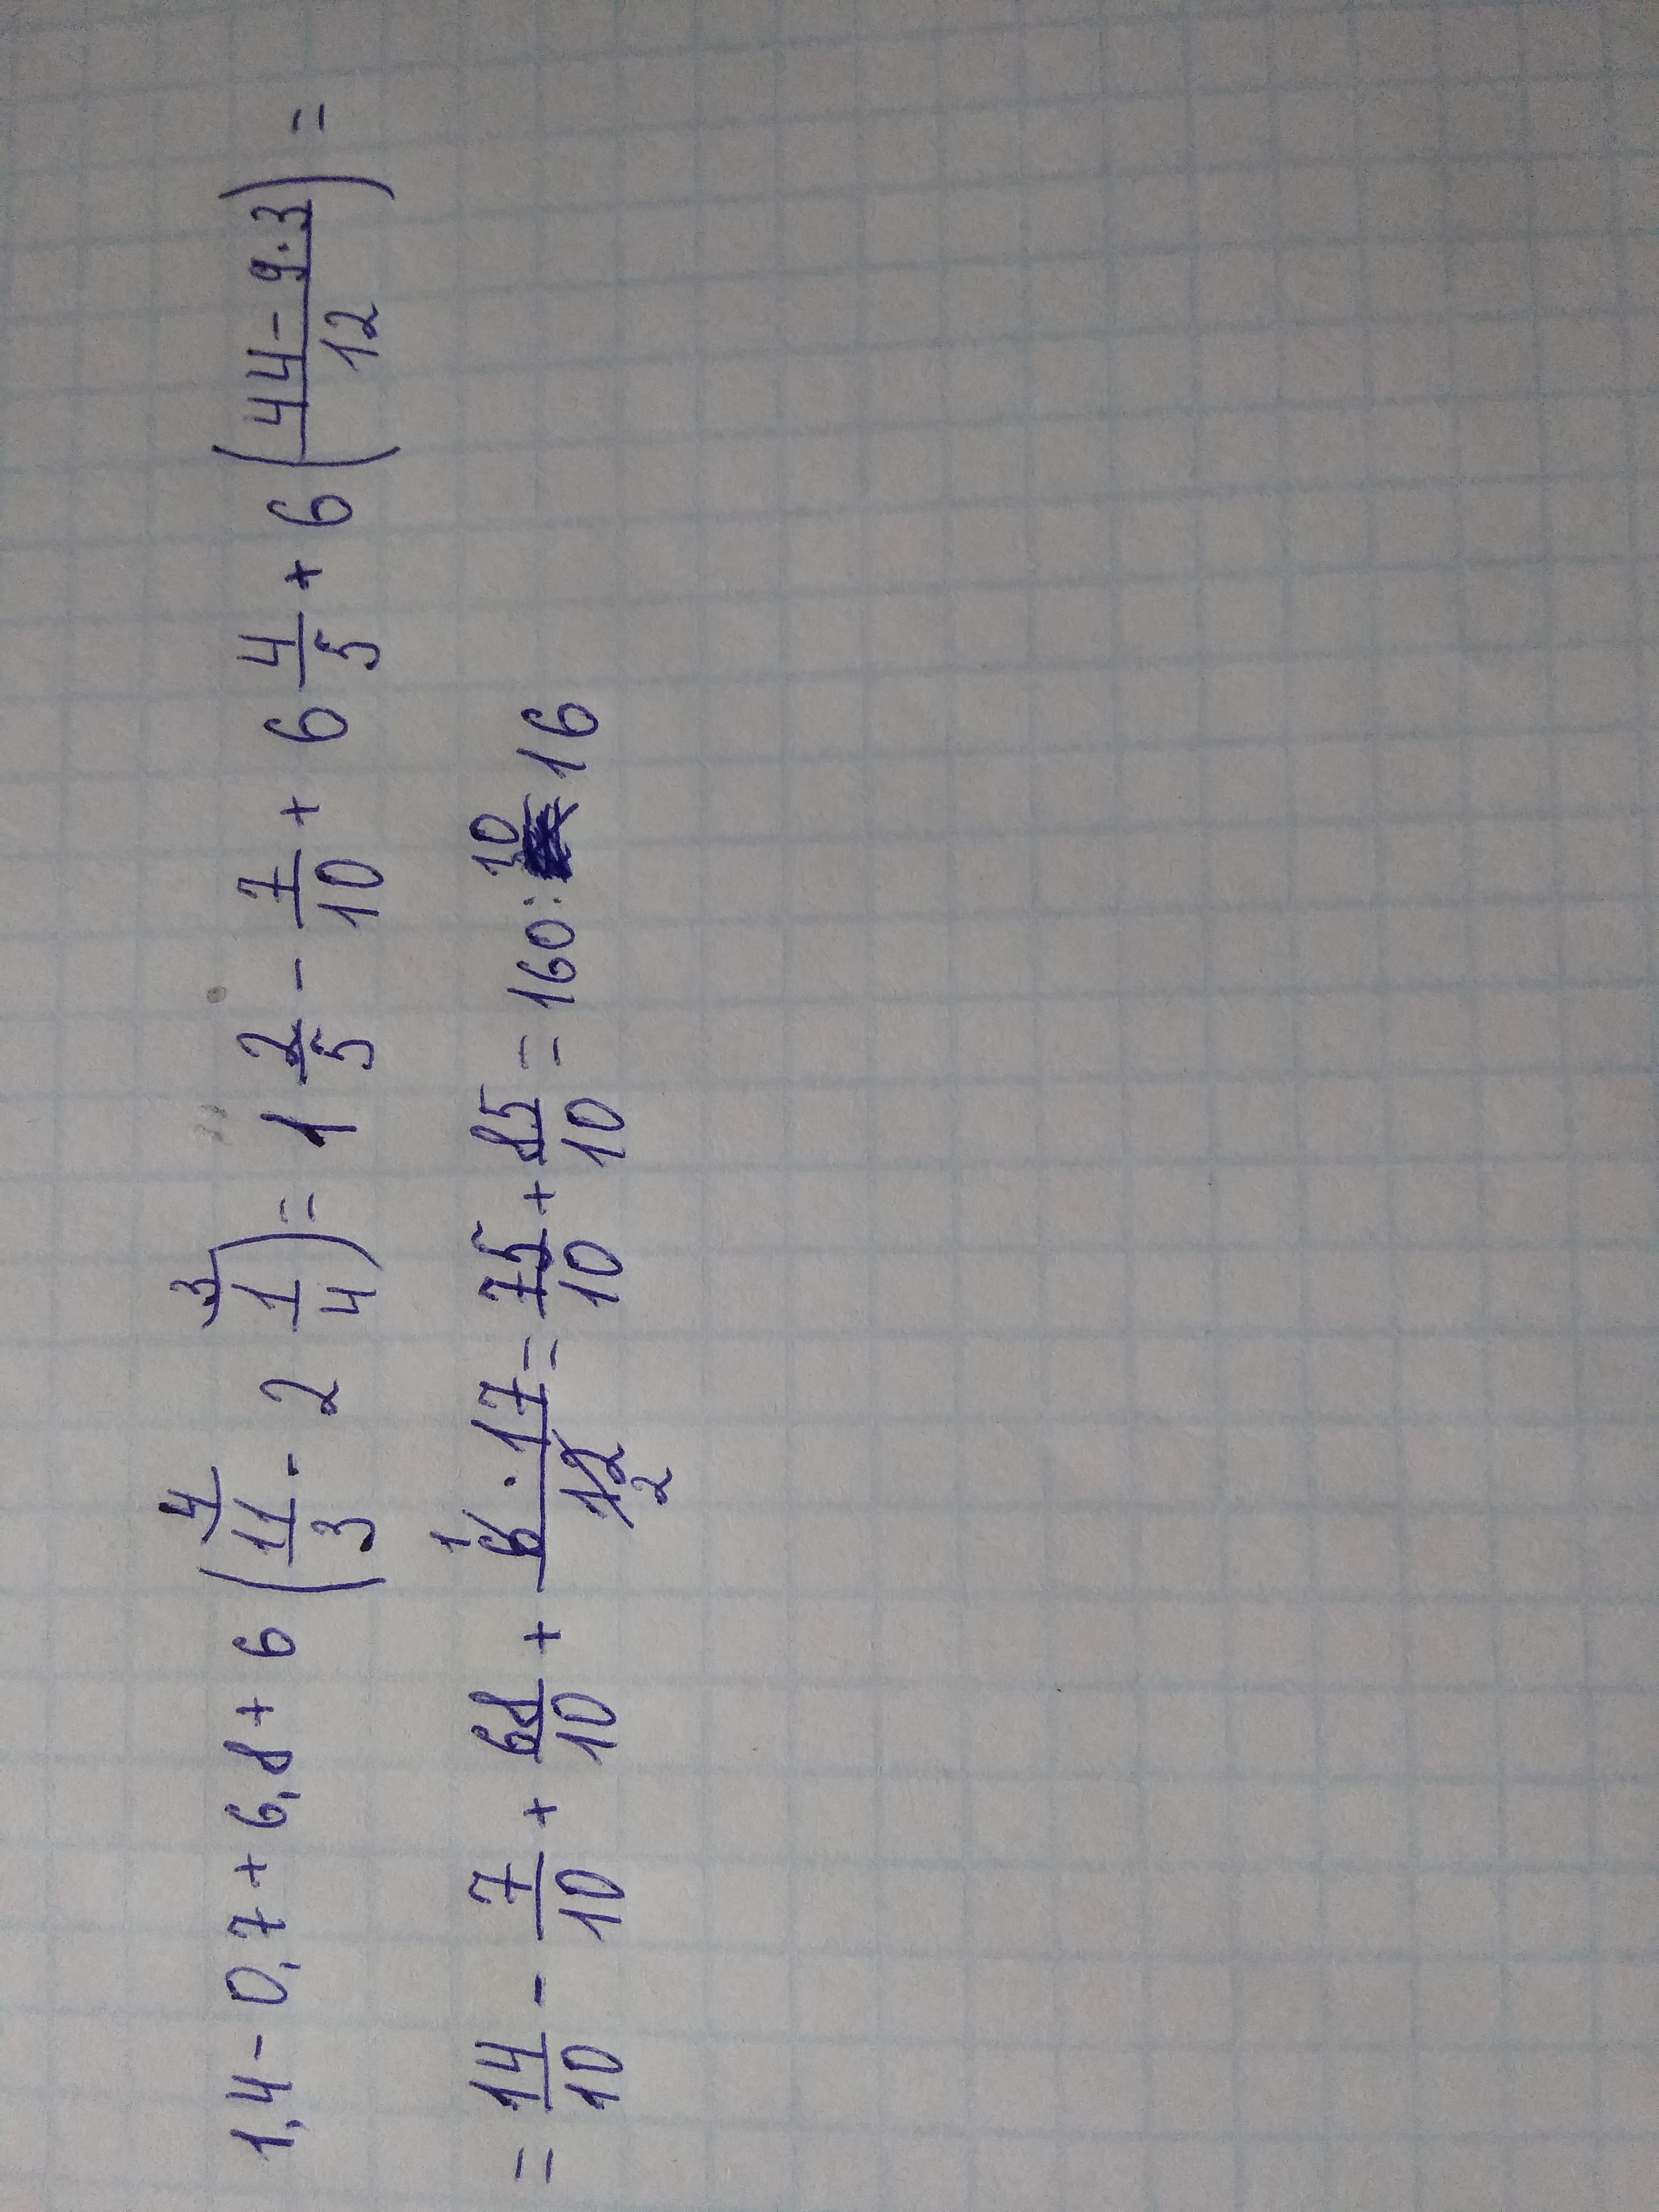 1,4 - 0,7 + 6,8 + 6 (11/3 ⁴ - 2 1/4 ³) = 1 2/5 - 7/10 + 6 4/5 + 6 (44 - 9·3/12) =
= 14/10 - 7/10 + 68/10 + 6 ¹ · 17/12 ₂ = 75/10 + 85/10 = 160 : 10 16